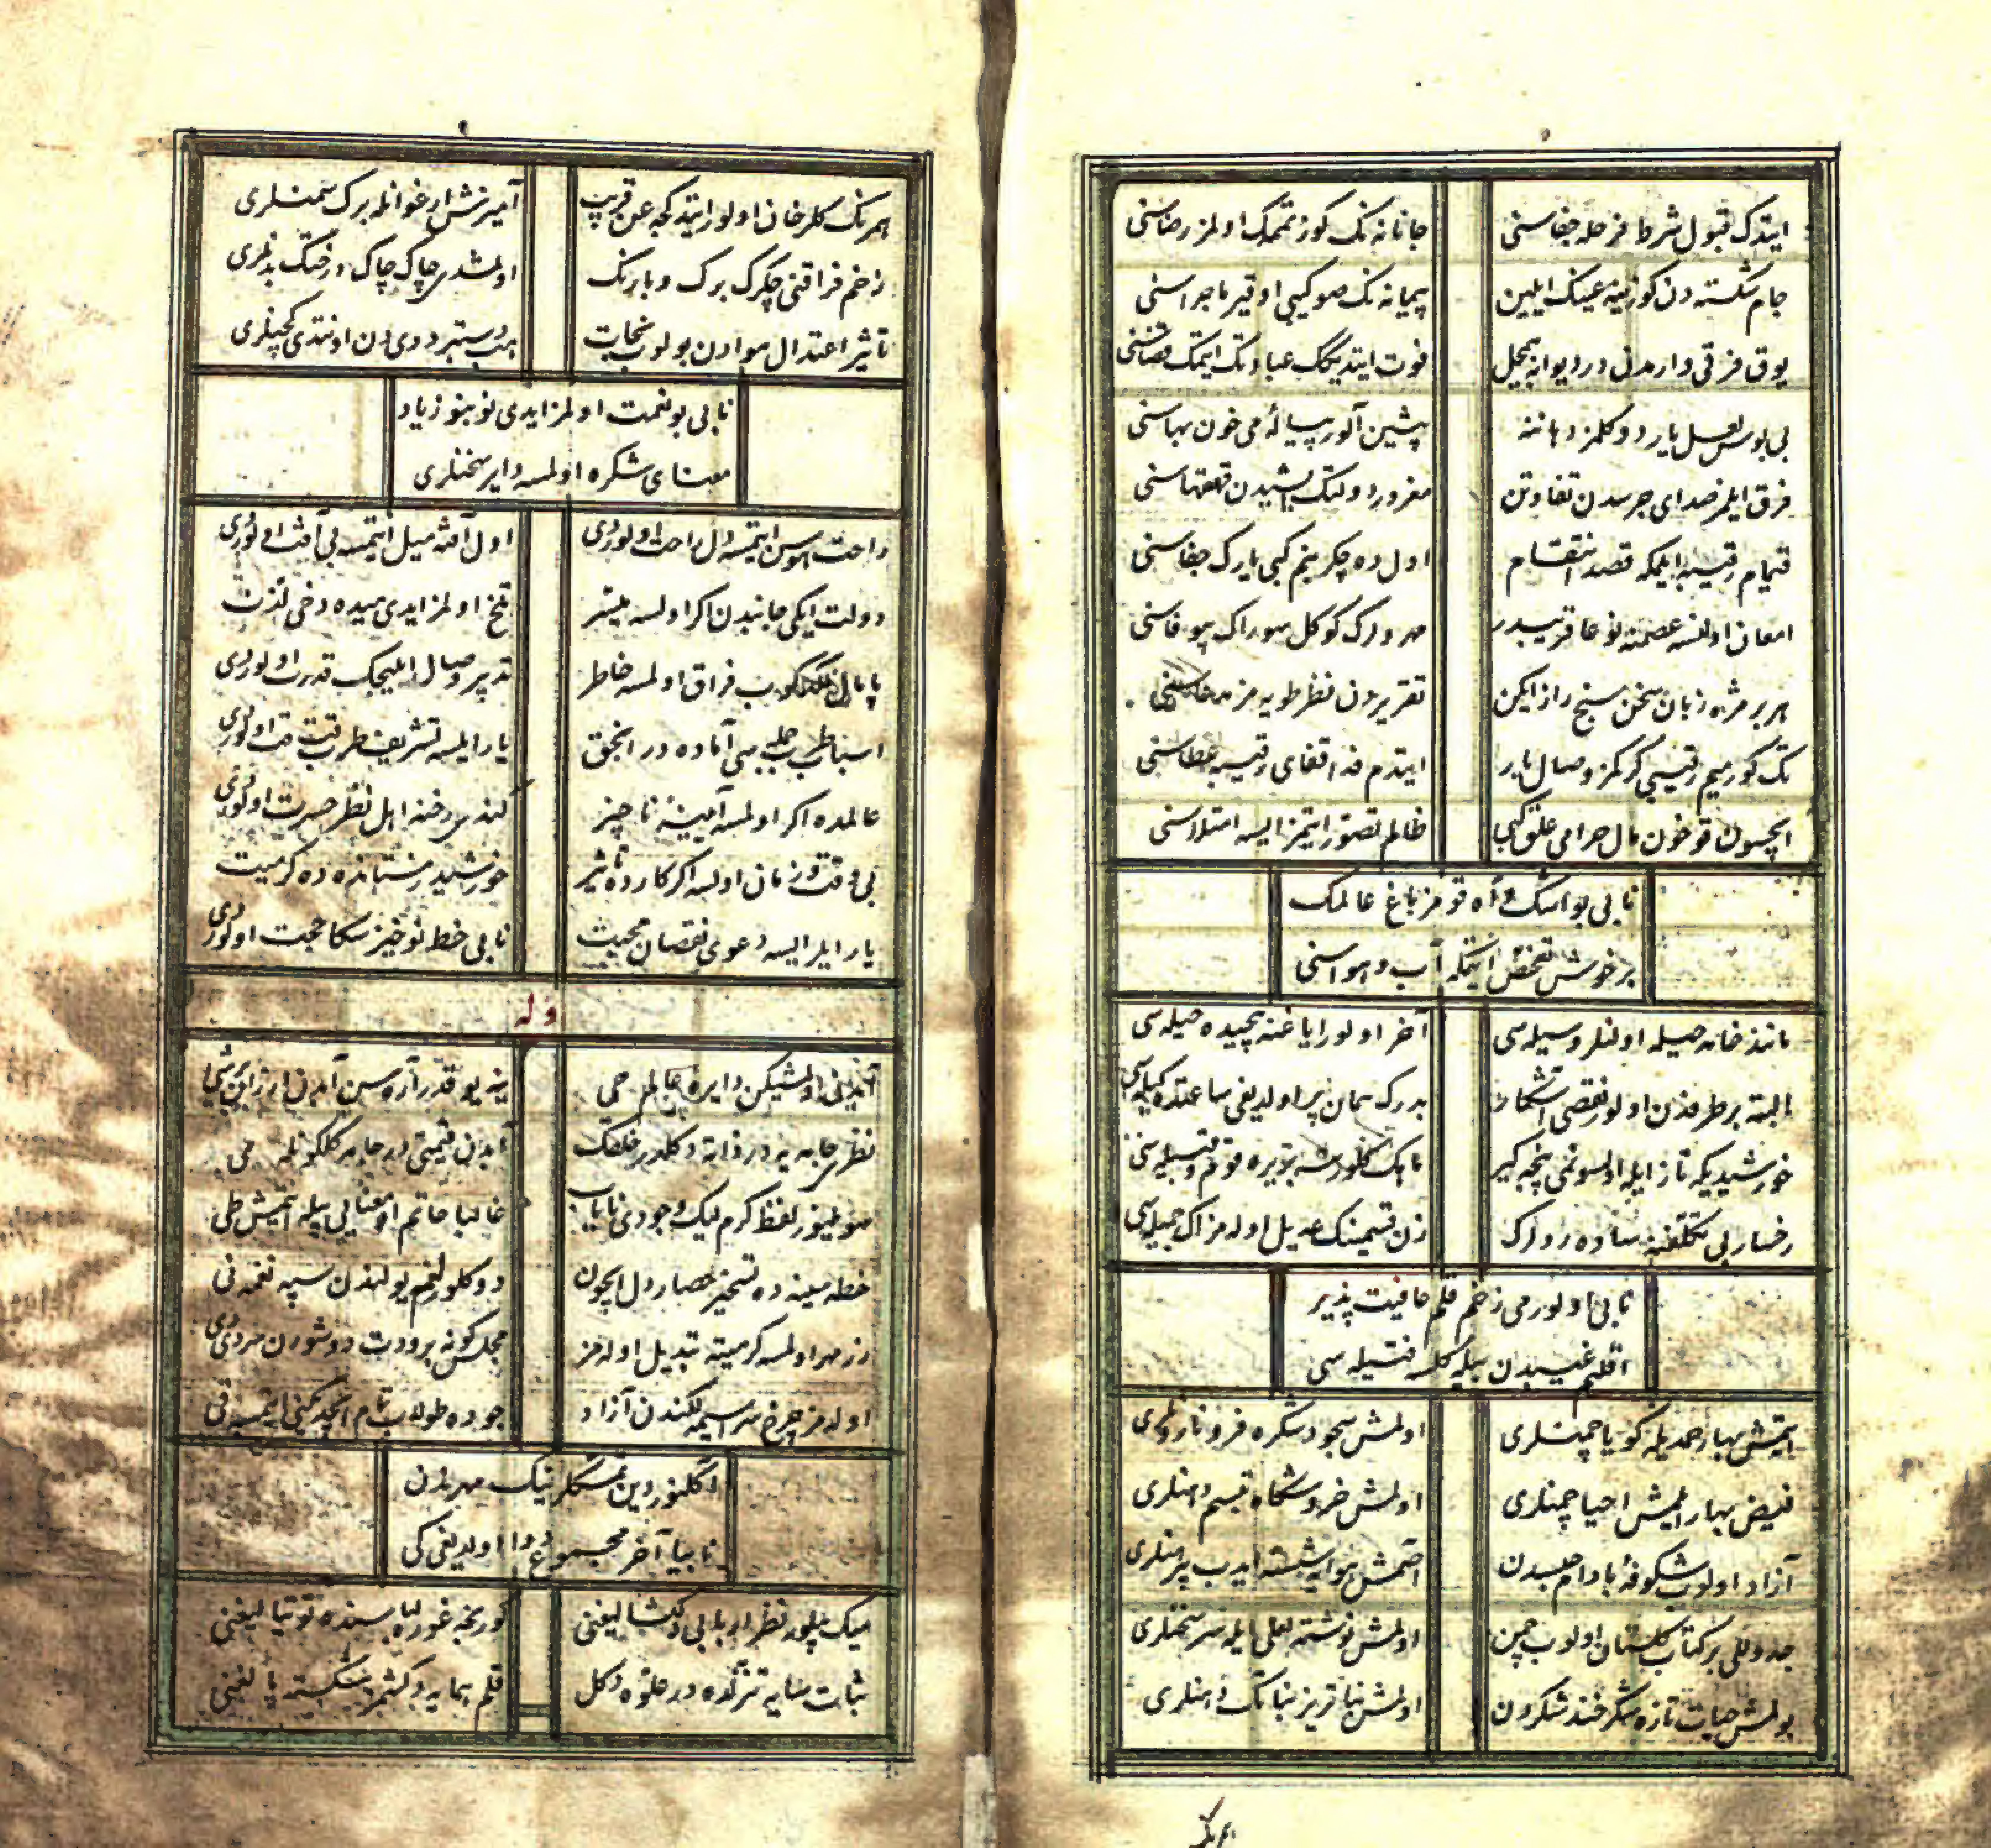 ایتدک قبول شرط فرحله جفاسنی
جانانه نک کوزتممک اولمز رضاسنی
جام شکسته دن کوزینه عینک ایلین
پیمانه نک صو کیبی اوقیر ماجراسنی
یوق فرقی وارمدن در دیوانه بیجیل
فوت ایتدیکک عبادتک ایتمک قضاسنی
بی بوس لعل یار دوکلمز دهاننه
پیشین آلور پیاله می خون بهاسنی
فرق ایلمز صدای جرسدن تفاوتن
مغرور دولتک ایشیدن قهقهاسنی
قتیام رقیبه ایلمکه قصد انتقام
اول ده چکر بنم کبی یارک جفاسنی
امعان اولنسه
مهرولرک کوکل سورک بیوفاسنی
هر بر مژه زبان سخن سنج راز ایکن
تقریردن نظر طویه مز مدعاسنی
تک کورمیم رقیبی کرکمز وصال یار
ایتدم فدا لقای رقیبه عطاسنی
ایچسون قو خون مال حرامی علق کبی
ظالم تصور ایتمز ایسه امتلاسنی
نابی بو اشک و آه قومز باغ عالمک
بر خوش تفحص ایتمکه آب و هواسنی
مانند خامه حیله اولنلر وسیله سی
آخر اولور ایاغنه پیچیده حیله سی
البته بر طرفدن اولور نقصی آشکار
بدرک همان پر اولدیغی ساعتده کیله سی
خورشید یکه تاز ایله اولسونمی پنجه کیر
ماهک کلورسه بریره قوم و قبیله سی
رخسار بی تکلفنه ساده رولرک
زن قسمینک عدیل اوله مز اک جمیله سی
نابی اولورمی زخم قلم عافیت پذیر
اقلیم غیبدن بیله کلسه فتیله سی
ایتمش بهار حمدیله کویا چمنلری
اولمش سجود شکره فرو نارونلری
فیض بهار ایلمش احیا چمنلری
اولمش خروشکاه تبسم دهنلری
آزاد اولوب شکوفه بادام حبسدن
اچمش هوایه شسته ایدوب پیرهنلری
جدوللی بر کتاب کلستان اولوب چمن
اولمش نوشته لعلی ایله سرسخنلری
بولمش حیات تازه شکرخند شکردن
اولمش نباتریز نباتک دهنلری
همرنک
همرنک کلرخان اولور ایتدکجه عن قریب
آمیزش ارغوانله برک سمنلری
زخم فراقنی چکرک برک و بارنک
اولمشدی چاک چاک درختک بدنلری
تاثیر اعتدال هوادن بولوب نجات
هب دستبرد دی دن اونتدی کچنلری
نابی بو نغمت اولمز ایدی نوبنو زیاد
معنای شکره اولمسه دایر سخنلری
راحت هوس ایتمسه دل راحت اولوردی
اول آفته میل ایتمسه بی آفت اولوردی
دولت ایکی جانبدن اکر اولسه میسر
تلخ اولمز ایدی میده دخی لذت
پامال لکدکوب فراق اولمسه خاطر
تدبیر وصال ایلیجک قدرت اولوردی
اسباب طرب جمله سی آماده در انجق
یار ایلسه تشریف طرب قت قت اولوردی
عالمده اکر اولمسه آیینه ناچیز
کندی رخنه اهل نظر حسرت اولوردی
بی وقت و زمان اولسه اکر کارده تاثیر
خورشید زمستانده ده کرمیت
یار ایلر ایسه دعوی نقصان محبت
نابی خط نوخیز سکا حجت اولوردی
وله
دایره عالم حی
ینه یوقدر آره سن آدمدن ارزان بر شی
نظری جامه یه در ذاته دکلدر خلقک
آدمن قیمتی در جامه کلکونله می
صویلینور لفظ کرم لیک وجودی نایاب
غالبا حاتم او معنایی بیله ایتمش طی
خطه سینه ده تسخیر حصار دل ایچون
دوکلور لخم یولندن سپه نغمه نی
زر مهر اولمسه کرمیته تبدیل اوله مز
مجلس کونه برودت دوشورن سردی دی
اوله مز چرخ سراسیمه لکندن آزاد
جورده طولاب تمام ایچدیکنی ایتمسه قی
اکلنور دین تمسکلرینک مهرندن
نابیا آخر مجموع دوا اولدیغی کی
عینک بیلور نظر اربابی دلکشالیغنی
کوریجه غوره لباسنده توتیالیغنی
ثبات سایه تنزلده در علوده دکل
قلم همایه دکشمز شکسته پالغنی